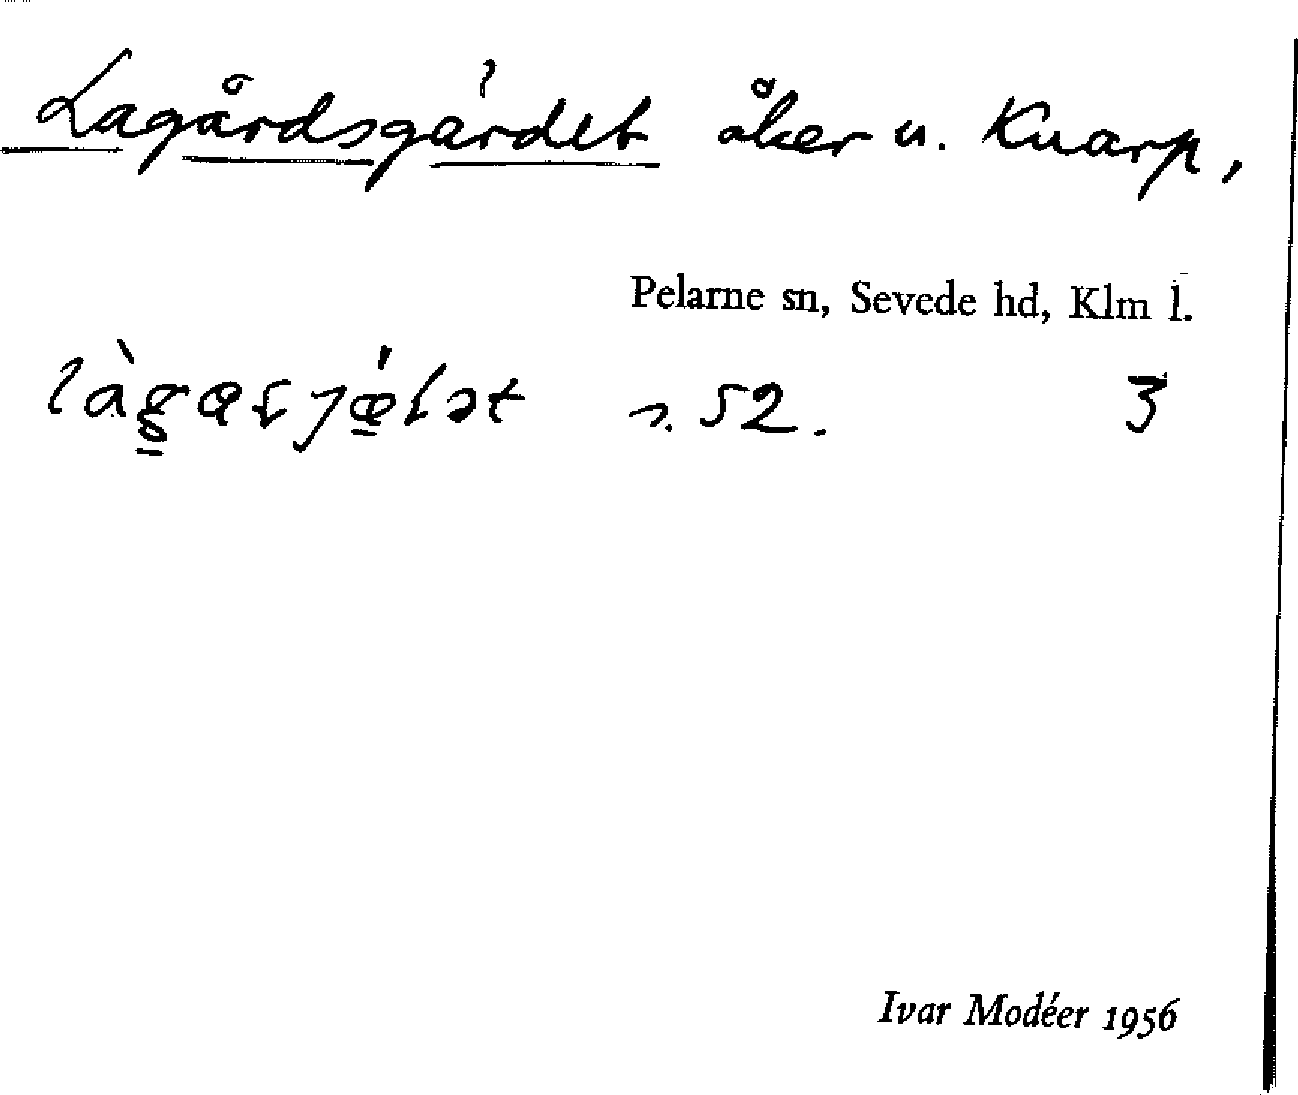 Lagårdsgärdet åker u. Knarp,
Pelarne sn, Sevede hd, Klm l.
s. 52. 3
Ivar Modéer 1956